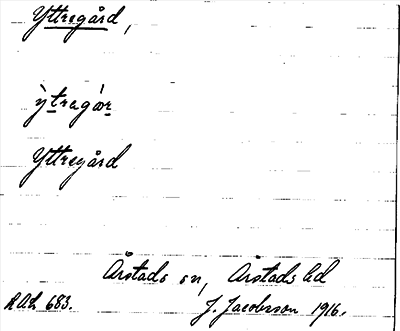 Yttregård,
ỳtragɷr
Yttregård
Årstads sn, Årstads hd
RAÄ 683. J. Jacobsson 1916.